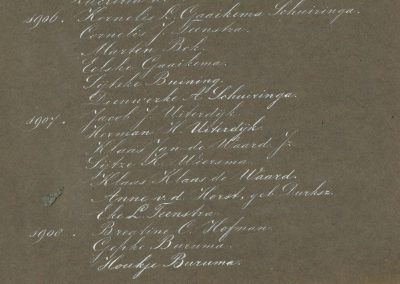 1906. Kornelis L. Gaaikema Schuiringa.
Cornelis J. Teenstra.
Marten Bok.
Eelske Gaaikema.
Sijtske Buining.
Dieuwerke A. Schuringa.
1907. Jacob J. Uiterdijk
Herman H. Uiterdijk.
Klaas Jan de Waard Jz
Sijtze K. Wiersma.
Klaas Klaas de Waard.
Anne v. d. Horst, geb. Durksz.
Eke L. Teenstra.
1908. Bregline C. Hofman.
Gepke Buruma.
Houkje Buruma.